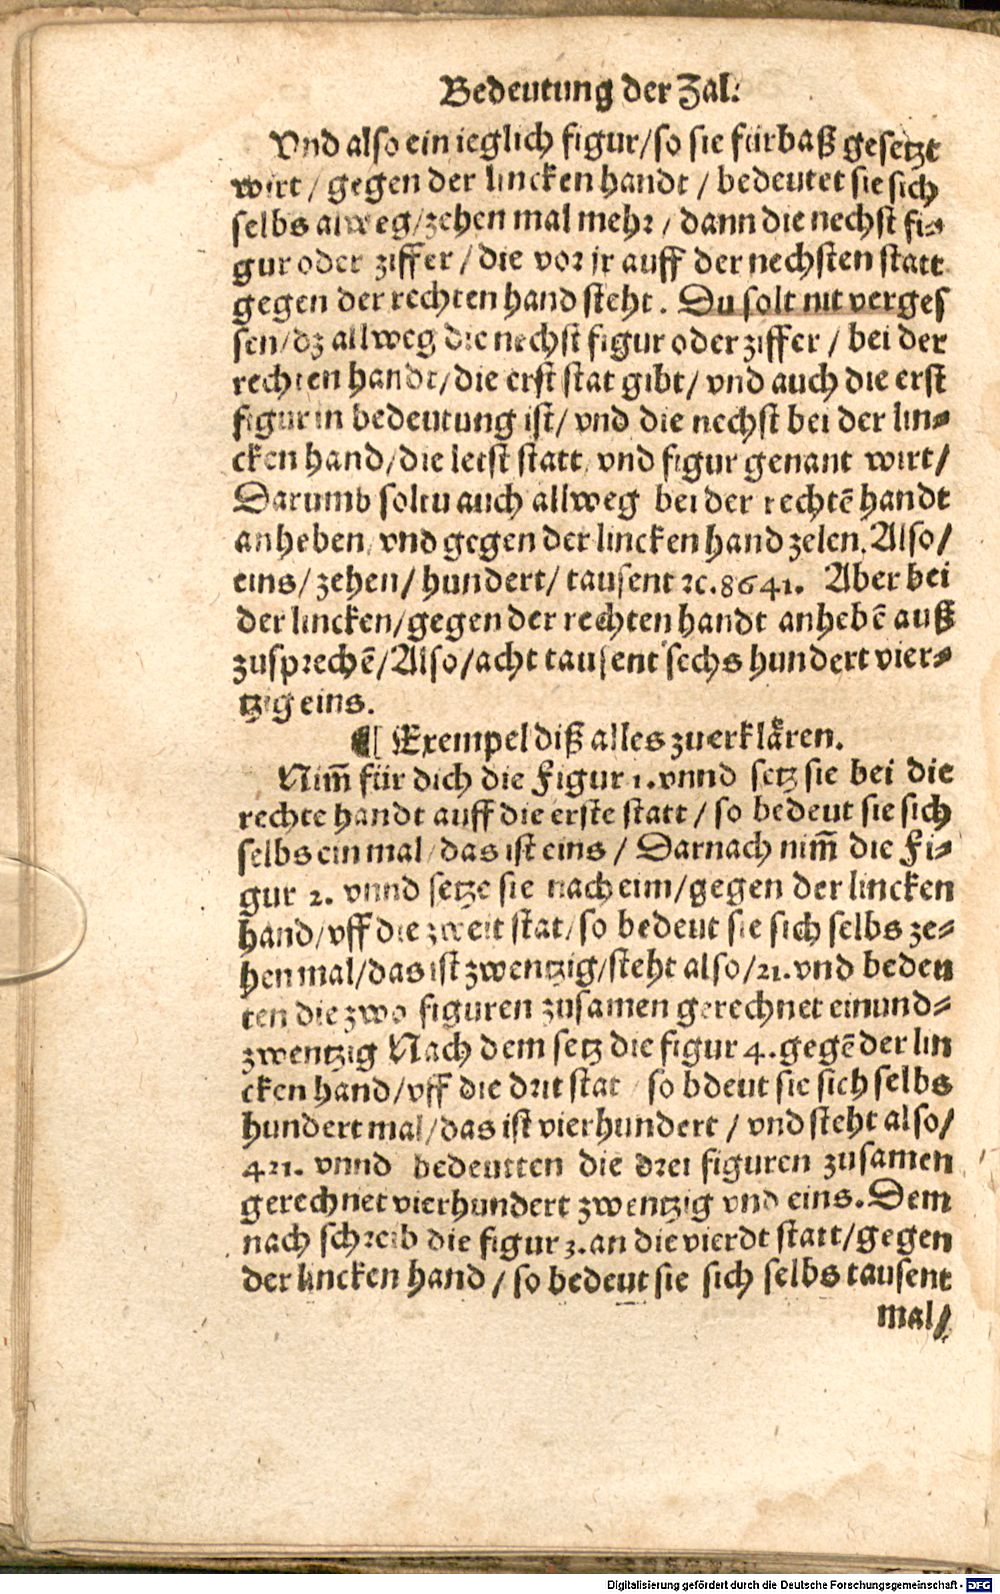 Bedeutung der Zal.
Vnd also ein ieglich figur/so sie fürbaß gesetzt
wirt / gegen der lincken handt / bedeutet sie sich
selbs alweg/zehen mal mehr / dann die nechst fi-
gur oder ziffer / die vor jr auff der nechsten statt
gegen der rechten hand steht. Du solt nit verges
sen/dz allweg die nechst figur oder ziffer / bei der
rechten handt/die erst stat gibt/ vnd auch die erst
figur in bedeutung ist/ vnd die nechst bei der lin-
cken hand/die letst statt/ vnd figur genant wirt/
Darumb soltu auch allweg bei der rechtē handt
anheben/ vnd gegen der lincken hand zelen. Also/
eins/ zehen/ hundert/ tausent ꝛc. 8641. Aber bei
der lincken/gegen der rechten handt anhebē auß
zusprechē/Also/acht tausent sechs hundert vier-
tzig eins.
¶ Exempel diß alles zuerklåren.
Nim̄ für dich die Figur 1. vnnd setz sie bei die
rechte handt auff die erste statt / so bedeut sie sich
selbs ein mal/das ist eins / Darnach nim̄ die Fi-
gur 2. vnnd setze sie nach eim/gegen der lincken
hand/vff die zweit stat/so bedeut sie sich selbs ze-
hen mal/das ist zwentzig/steht also/21. vnd beden
ten die zwo figuren zusamen gerechnet einund-
zwentzig Nach dem setz die figur 4. gegē der lin
cken hand/vff die drit stat / so bdeut sie sich selbs
hundert mal/das ist vierhundert / vnd steht also/
421. vnnd bedeutten die drei figuren zusamen
gerechnet vierhundert zwentzig vnd eins. Dem
nach schreib die figur 3. an die vierdt statt/gegen
der lincken hand / so bedeut sie sich selbs tausent
mal/
Digitalisierung gefördert durch die Deutsche Forschungsgemeinschaft - DFG